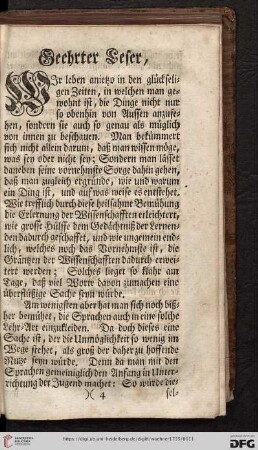 Geehrter Leser,
WIr leben anjetzo in den glückseli-
gen Zeiten, in welchen man ge-
wohnt ist, die Dinge nicht nur
so obenhin von Aussen anzuse-
hen, sondern sie auch so genau als müglich
von innen zu beschauen. Man bekümmert
sich nicht allein darum, daß man wissen möge,
was sey oder nicht sey; Sondern man lässet
daneben seine vornehmste Sorge dahin gehen,
daß man zugleich ergründe, wie und warum
ein Ding ist, und auf was weise es entstehet.
Wie trefflich durch diese heilsahme Bemühung
die Erlernung der Wissenschafften erleichtert,
wie grosse Hülffe dem Gedächtniß der Lernen-
den dadurch geschaffet, und wie ungemein end-
lich, welches noch das Vornehmste ist, die
Gräntzen der Wissenschafften dadurch erwei-
tert werden; Solches lieget so klahr am
Tage, daß viel Worte davon zumachen eine
überflüßige Sache seyn würde.
Am wenigsten aber hat man sich noch biß-
her bemühet, die Sprachen auch in eine solche
Lehr-Art einzukleiden. Da doch dieses eine
Sache ist, der die Unmöglichkeit so wenig im
Wege stehet, als groß der daher zu hoffende
Nutz seyn würde. Denn da man mit den
Sprachen gemeiniglich den Anfang in Unter-
richtung der Jugend machet: So würde die-
)( 4
sel-
UNIVERSITÄTS-BIBLIOTHEK HEIDELBERG
DFG